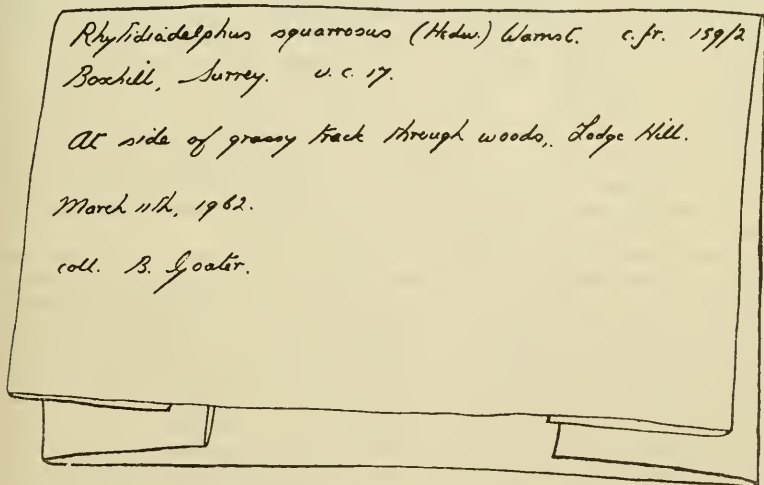 Rhytidiadelphus squarrosus (Hedw.) Warnst. c.fr. 159/2
Boxhill, Surrey. v.c. 17.
At side of grassy track through woods, Lodge Hill.
March 11th, 1962.
coll. B. Goater.